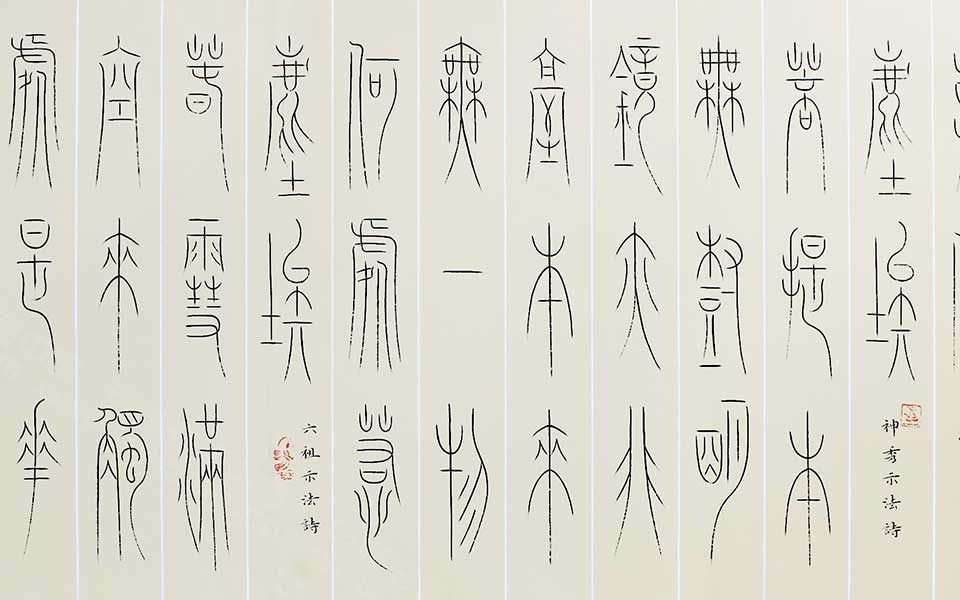 塵埃
神秀示法詩
菩提本
無樹明
鏡亦非
臺本來
無一物
何處惹
塵埃
六祖示法詩
春雪滿
空來觸
處是華